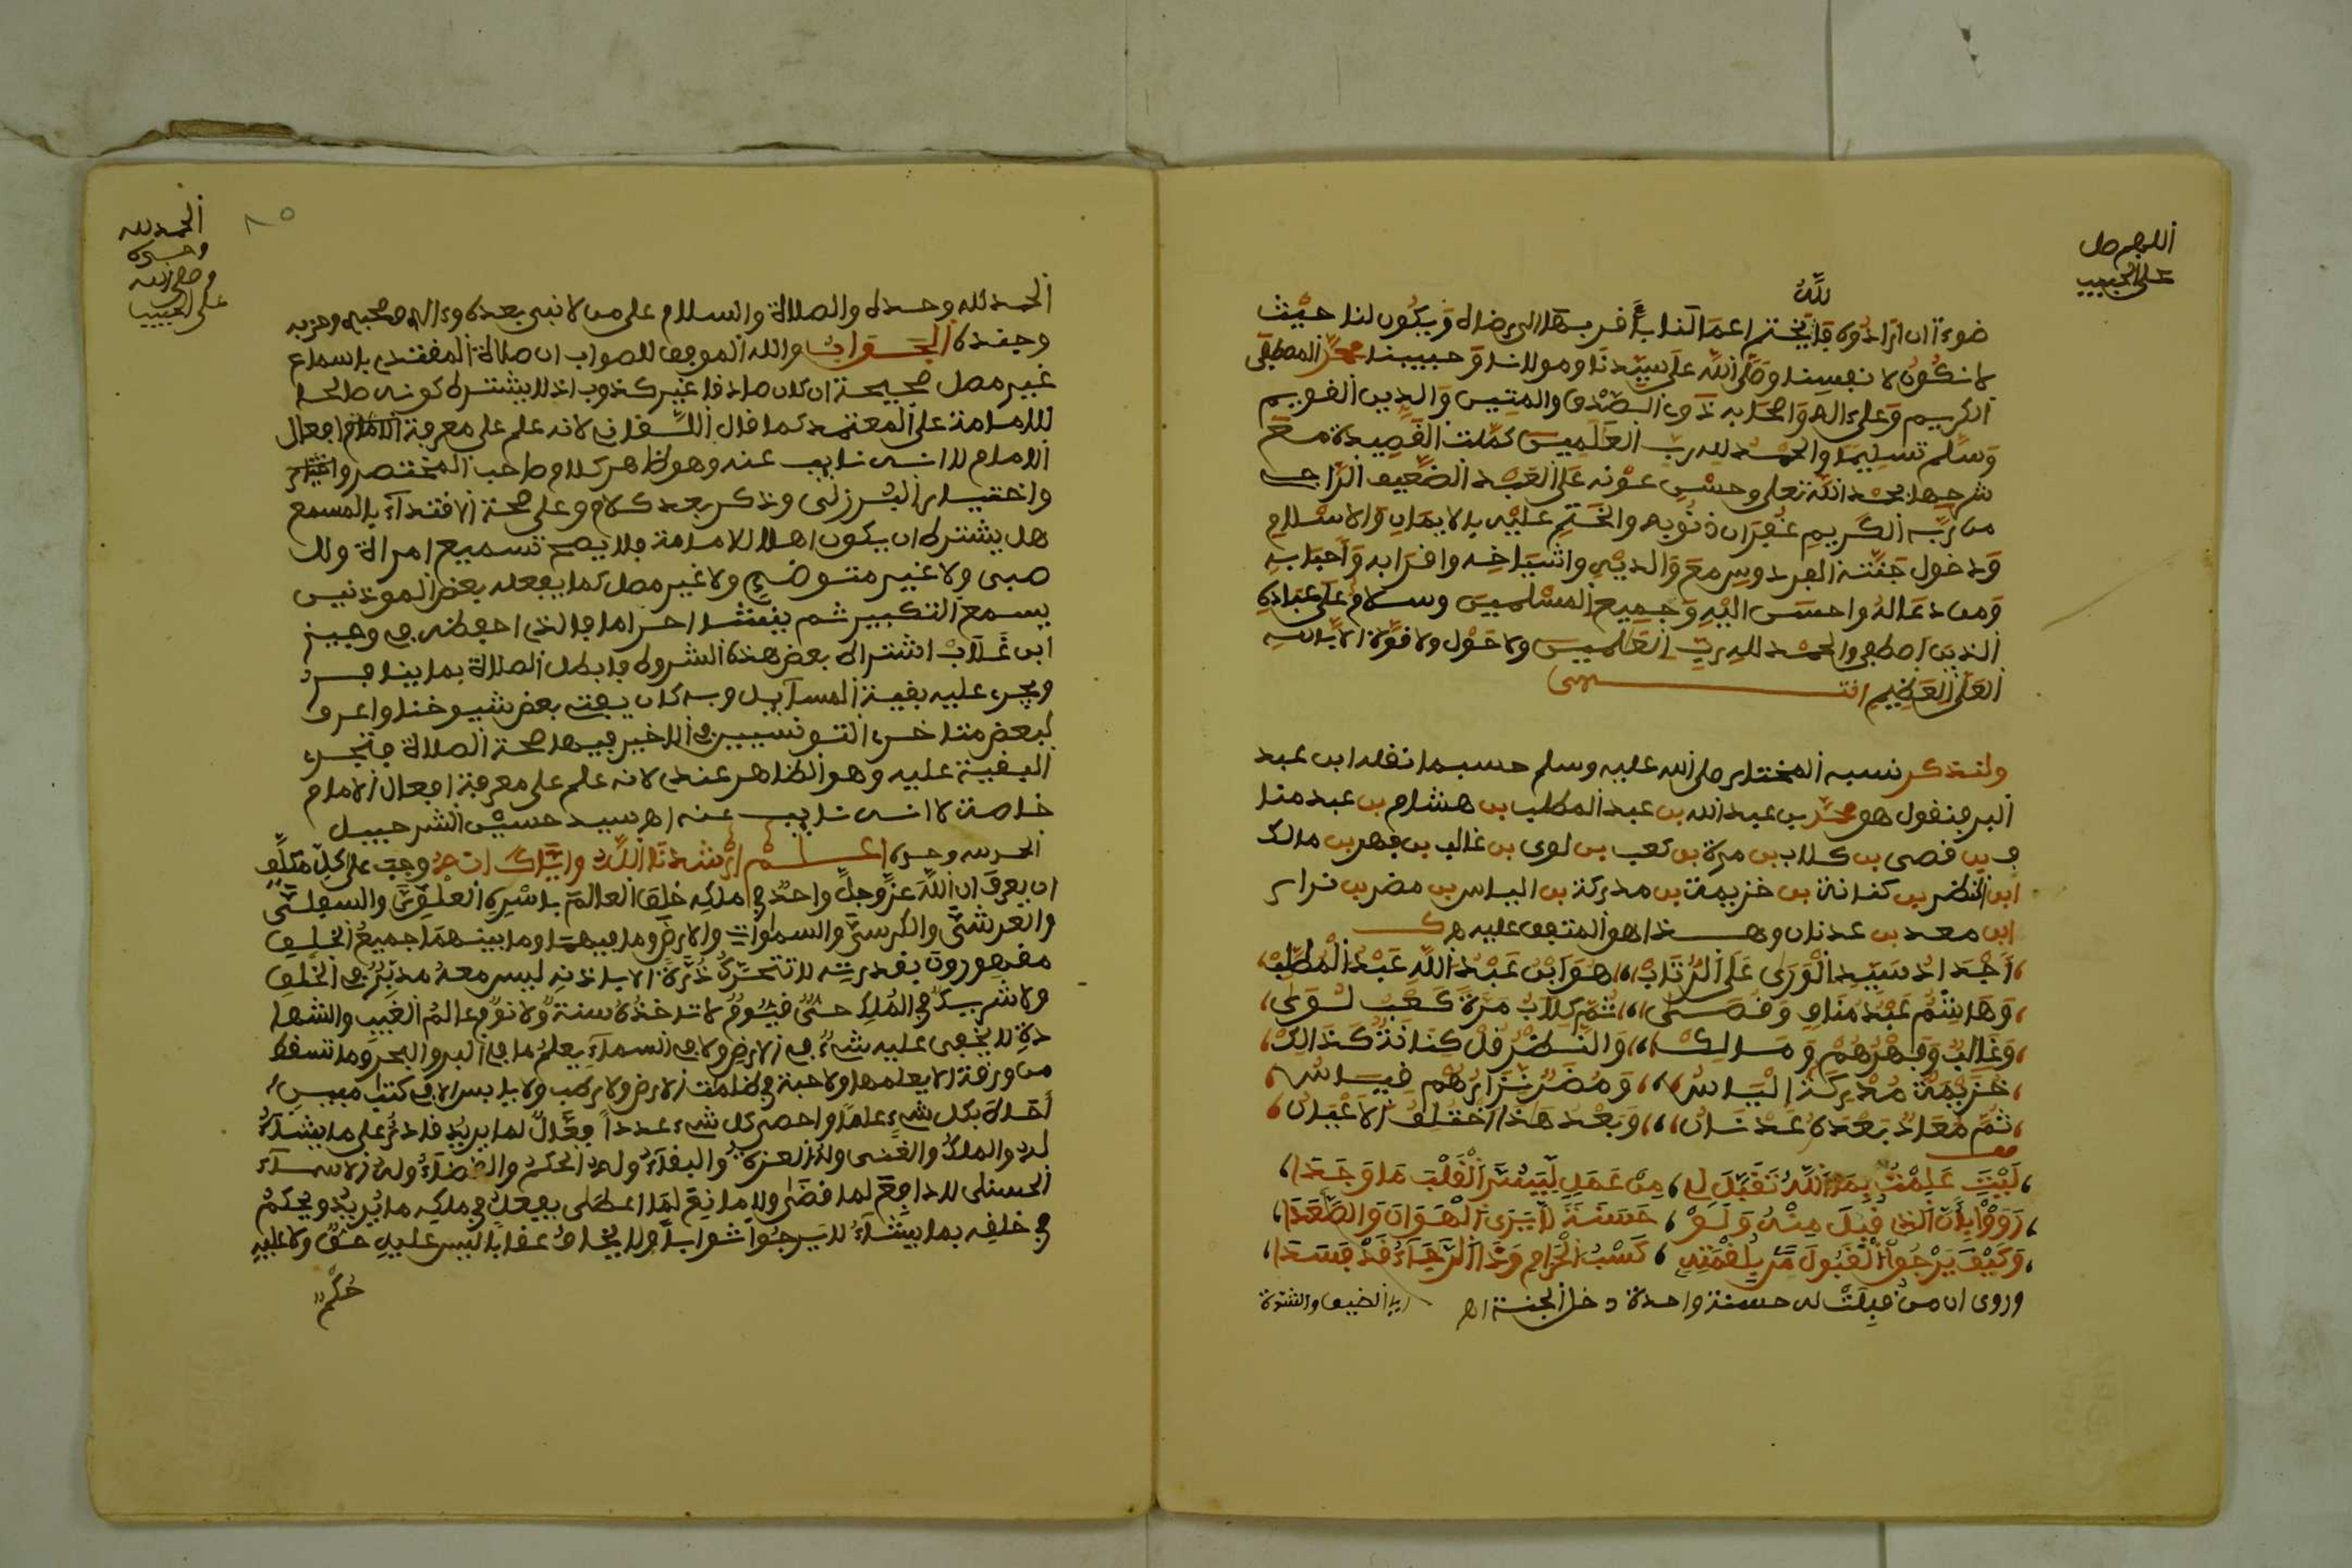 اللهم صل
على الحبيب
لله
ضوءا ان اراده فايختم اعمالنا بما فر بها الى رضاه ويكون لنا حيث
لا نكون لانفسنا وصلى الله على سيدنا ومولانا وحبيبنا محمد المصطفى
الكريم وعلى اله واصحابه ذوي الصدق والمتين والدين القويم
وسلم تسليما والحمد لله رب العلمين كملت القصيدة مع
شرحها بحمد الله تعلى وحسن عونه على العبد الضعيف الراجي
من ربه الكريم غفران ذنوبه والختم عليه بالايمان والاسلام
ودخول جنته الفردوس مع والديه واشياخه واقرابه واحبابه
ومن دعا له واحسن اليه وجميع المسلمين وسلام على عباده
الذين اصطفى والحمد لله رب العلمين ولا حول ولا قوة الا بالله
العلي العظيم انتهى
ولنذكر نسبه المختار صلى الله عليه وسلم حسبما نقله ابن عبد
البر فنقول هو محمد بن عبد الله بن عبد المطلب بن هشام بن عبد منا
ف بن قصى بن كلاب بن مرة بن كعب بن لوى بن غالب بن فهر بن مالك
ابن النضر بن كنانة بن خزيمة بن مدركة بن الياس بن مضر بن نزار
ابن معد بن عدنان وهذا هو المتفق عليه
اجداد سيد الورى على الرتاب هو ابن عبد الله عبد المطلب
وهاشم عبد مناف وقصى ثم كلاب مرة كعب لوى
وغالب وفهرهم ومالك والنضر قل كنانة كذالك
خزيمة مدركة الياس ومضر نزارهم قياس
ثم معاد بعده عدنان وبعد هذا اختلف الاعيان
ليت علمت بما الله تقبل لي من عمل ليبشر القلب ما وجدا
رووا بأن الذي قبل منه ولو حسنة لا يرى الهوان والصعدا
وكيف يرجوا القبول من بلقمته كسب الحرام وذا الرجاء قد فسدا
وروى ان من قبلت له حسنة واحدة دخل الجنة اه اي الضيق والشدة
الحمد لله
وحده
وصلى الله
على الحبيب
٨٥
الحمد لله وحده والصلاة والسلام على من لا نبى بعده وءاله وصحبه وحزبه
وجنده الجواب والله الموفق للصواب ان صلاة المقتدي باسماع
غير مصل صحيحة ان كان صادقا غير كذوب اذ لا يشترط كونه صالحا
للامامة على المعتمد كما قال اللقاني لانه علم على معرفة افعال
الامام لا انه نايب عنه وهو ظاهر كلام صاحب المختصر واختيار
واختيار البرزلى وذكر بعد كلام وعلى صحة الاقتداء بالمسمع
هل يشترط ان يكون اهلا للامامة فلا يصح تسميع امراة ولا
صبى ولا غير متوضئ ولا غير مصل كما يفعله بعض الموذنين
يسمع التكبير ثم ينشئ احراما والذي احفظه في وجيز
ابن غلاب اشتراط بعض هذه الشروط فابطل الصلاة بما ينا فرد
ويجري عليه بقية المسآيل وبه كان يفتي بعض شيوخنا واعرف
لبعض متاخري التونسيين في الاخير فيها صحة الصلاة فتجري
البقية عليه وهو الظاهر عندي لانه علم على معرفة افعال الامام
خاصة لا انه نايب عنه اه سيد حسين الشرحبيل
الحمد لله وحده اعلم ارشدنا الله واياك انه وجب على كل مكلف
ان يعرف ان الله عز وجل واحد في ملكه خلق العالم باسره العلوى والسفلى
والعرش والكرسي والسموات والارض وما فيهما وما بينهما جميع الخلق
مقهورون بقدرته لا تتحرك ذرة الا باذنه ليس معه مدبر في الخلق
ولا شريك في الملك حى قيوم لا تاخذه سنة ولا نوم عالم الغيب والشها
دة لا يخفى عليه شىء في الارض ولا في السماء يعلم ما في البر والبحر وما تسقط
من ورقة الا يعلمها ولا حبة في ظلمت الارض ولا رطب ولا يابس الا في كتب مبين
احاط بكل شىء علما واحصى كل شىء عددا فعال لما يريد قادر على ما يشآء
له الملك والغنى وله العزة والبقآء وله الحكم والقضآء وله الاسمآء
الحسنى لا دافع لما قضى ولا مانع لما اعطى يفعل في ملكه ما يريد ويحكم
في خلقه بما يشآء لا يرجوا ثوابا ولا يخاف عقابا ليس عليه حق ولا عليه
حكم